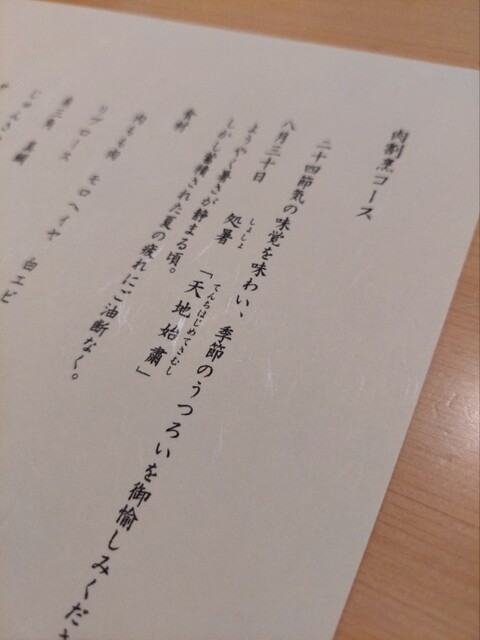 肉割烹コース
二十四節気の味覚を味わい、季節のうつろいを御愉しみくださ
八月三十日 処暑 「天地始肅」
しょしょ てんちはじめてさむし
ようやく暑さが静まる頃。
しかし蓄積された夏の疲れにご油断なく。
食材
肉もも肉 モロヘイヤ 白エビ
リブロース
真鯛
じゅんさ